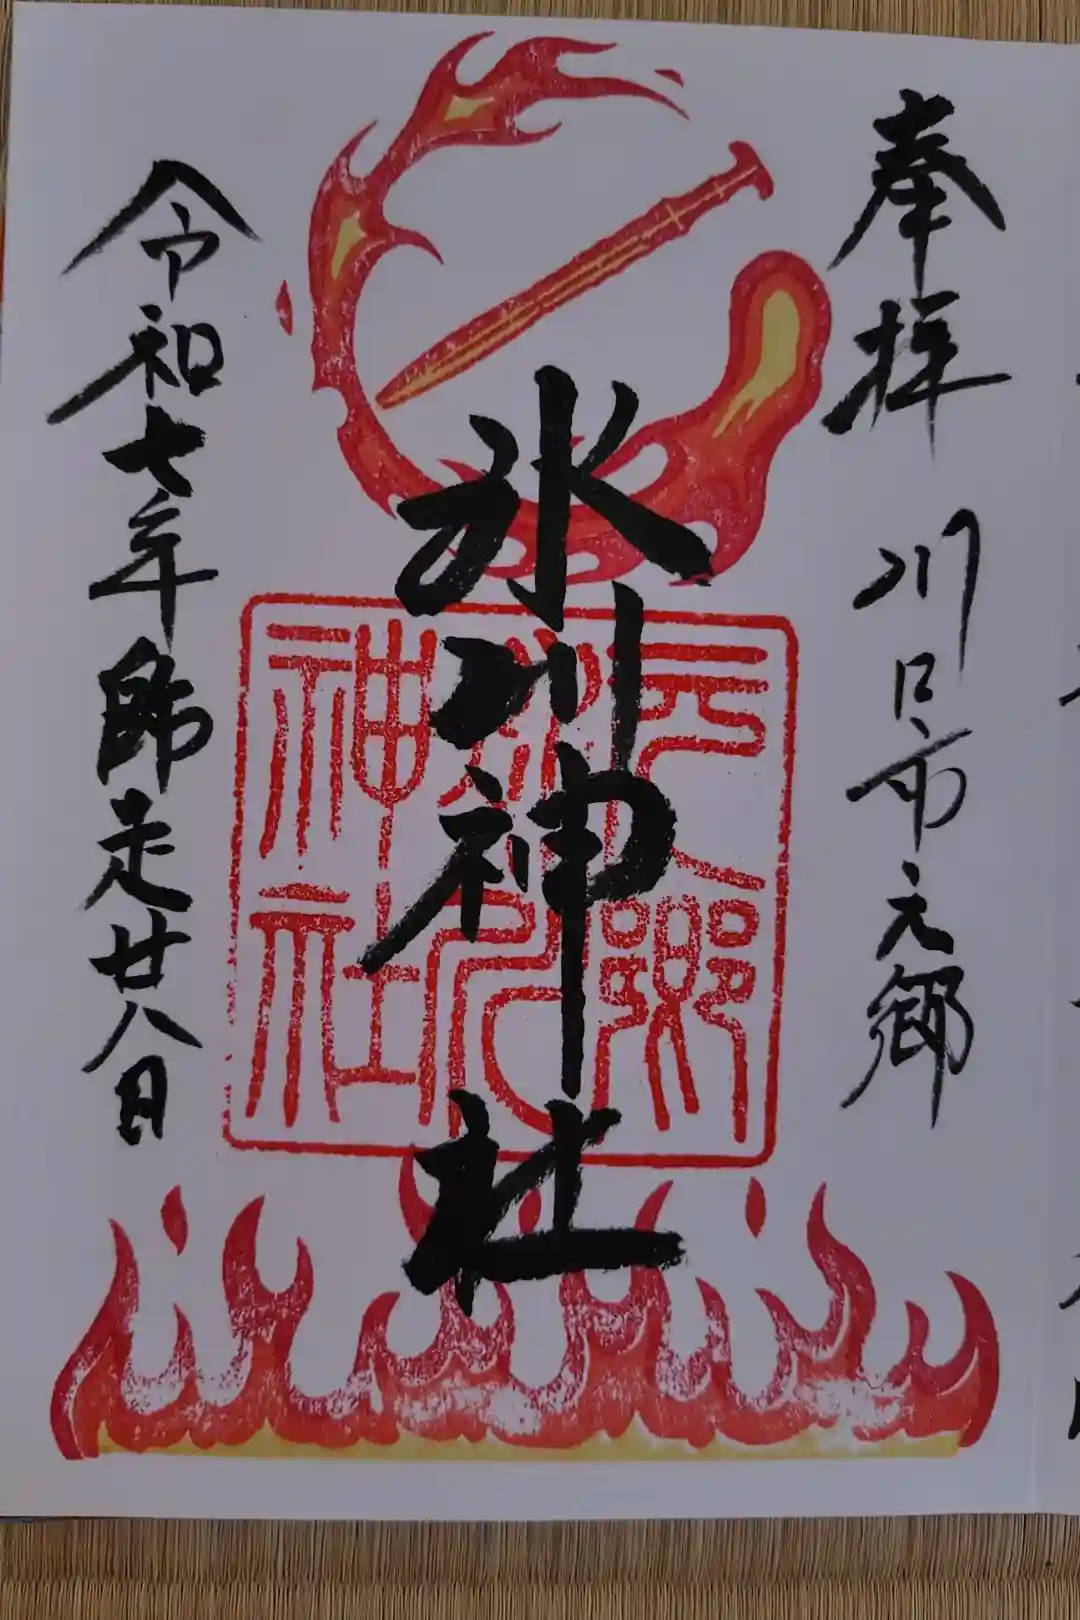 奉拝
川口市元郷
氷川神社
令和七年師走廿八日
神社